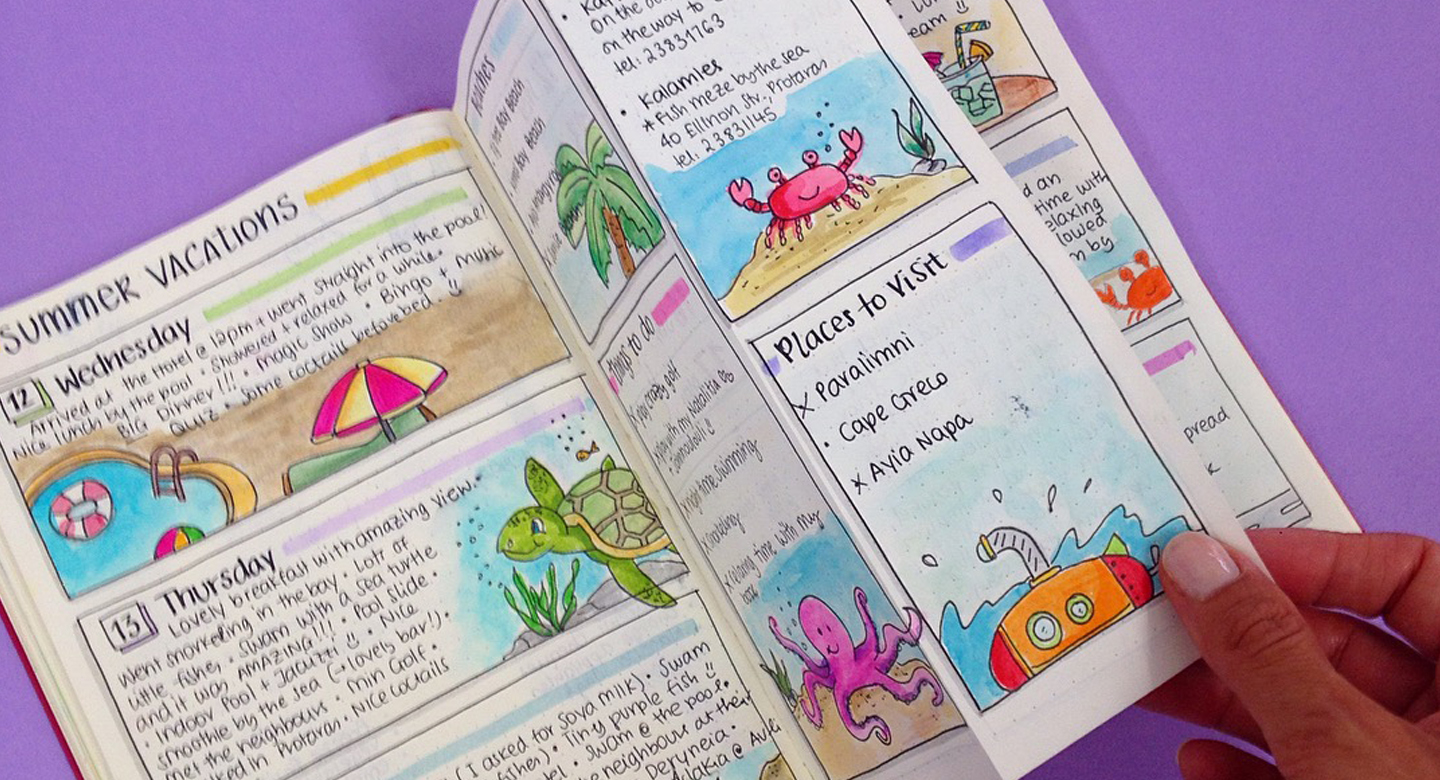 SUMMER VACATIONS
12 Wednesday
Arrived at the Hotel @ 12pm + went straight into the pool!
Nice lunch by the pool • Showered + relaxed for a while •
BIG Dinner!!! • magic show • Bingo + Music
Quiz • Some coctails before bed.
13 Thursday
Lovely breakfast with amazing view.
Went snorkeling in the bay • Lots of
little fishes • Swam with a sea turtle
and it was AMAZING!!! • Pool slide •
• Indoor Pool + Jacuzzi • Nice
smoothie by the sea (+ lovely bar!) •
met the neighbours • mini Golf •
in Protaras • Nice coctails
(I asked for soya milk) • Swam
• Tiny purple fish
• Swam @ the pool •
neighbours at their
Deryneia •
@
Beach
Bay Beach
things to do
crazy golf
with my Natalitta
night time swimming
relaxing time with my
on the
on the way to
tel: 23831763
• Kalamies
*Fish meze by the sea
40 Ellinon Str., Protaras
tel: 23831145
Places to Visit
x Paralimni
• Cape Greco
x Ayia Napa
d an
time with
elaxing
lowed
by
pread
k